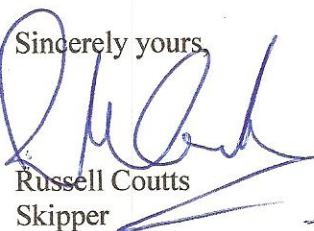 Sincerely yours,
Russell Coutts
Skipper